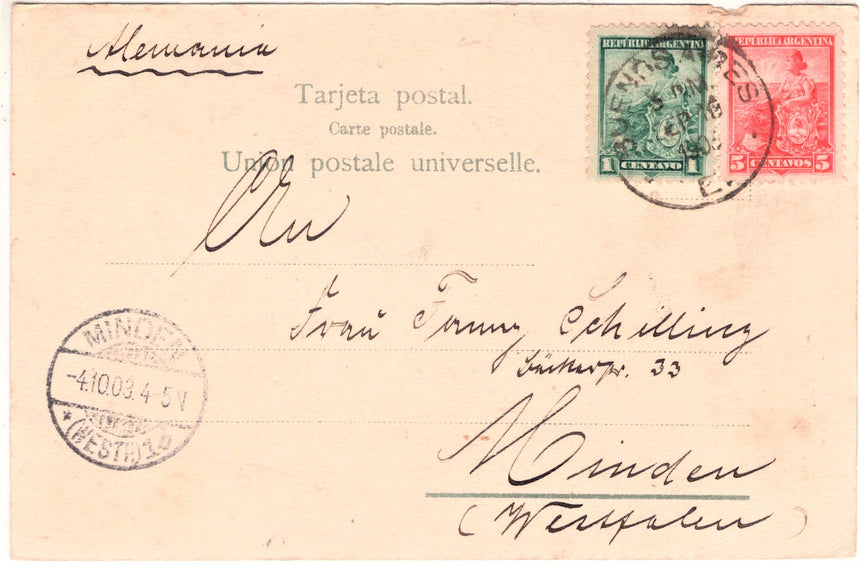 Alemania
Tarjeta postal.
Carte postale.
Union postale universelle.
REPUBLICA ARGENTINA
1 CENTAVO 1
REPUBLICA ARGENTINA
5 CENTAVOS 5
BUENOS AIRES
An
Frau Fanny Schilling
Bäckerstr. 33
Minden
(Westfalen)
MINDEN
-4.10.03. 4-5V
* (WESTF.) 1